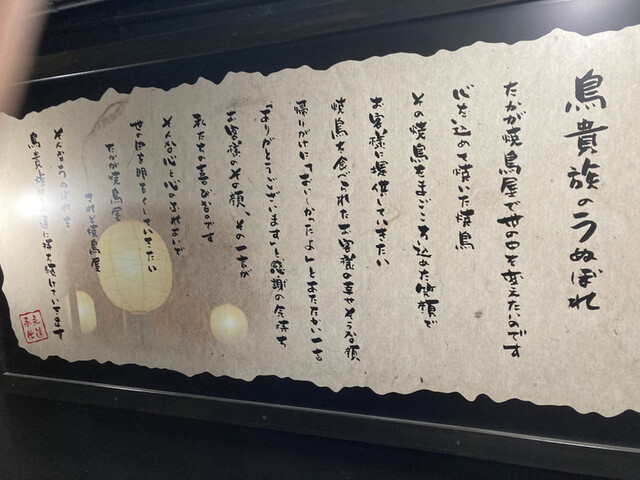 鳥貴族のうぬぼれ
たかが焼鳥屋で世の中を変えたいのです
心を込めて焼いた焼鳥
その焼鳥をまごころ込めた笑顔で
お客様に提供していきたい
焼鳥を食べられたお客様の幸せそうな顔
帰りがけに「おいしかったよ」とあたたかい一言
「ありがとうございます」と感謝の気持ち
お客様のその顔、その一言が
私たちの喜びなのです
そんな心と心のふれあいで
世の中を明るくしていきたい
たかが焼鳥屋
されど焼鳥屋
そんなうぬぼれを
鳥貴族は永遠に持ち続けていきます